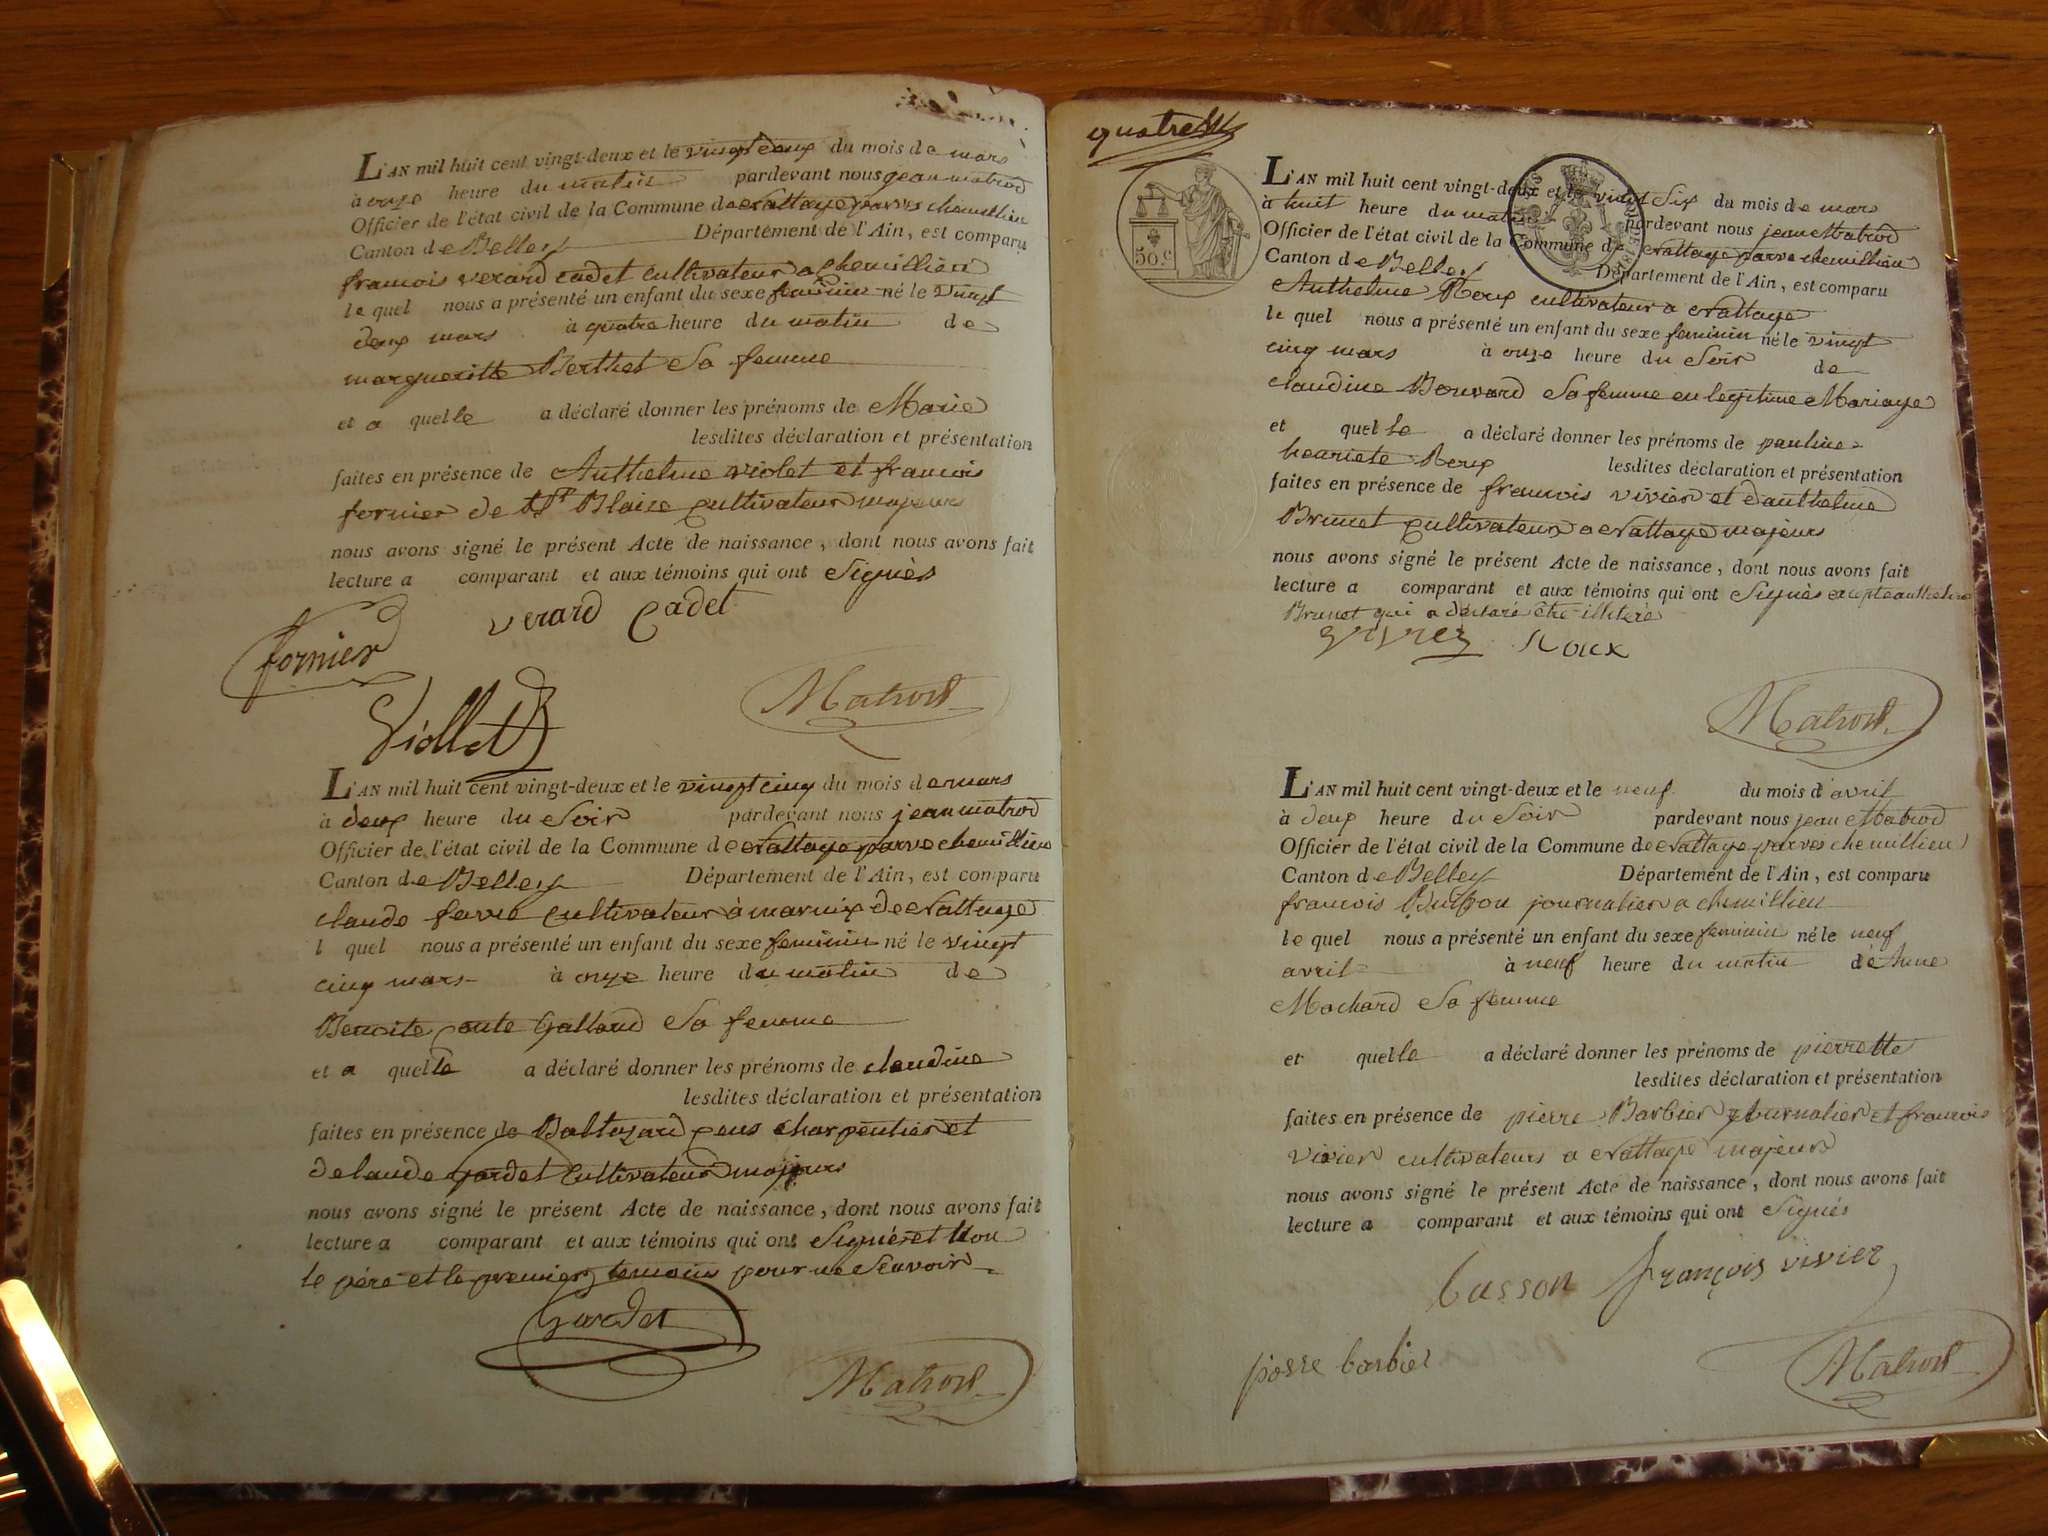 L'AN mil huit cent vingt-deux et le vingt deux du mois de mars
à onze heure du matin pardevant nous jean matrod
Officier de l'état civil de la Commune de Crattaye parves chemillieu
Canton de Belley Département de l'Ain, est comparu
francois verard cadet cultivateur a Chemillieu
le quel nous a présenté un enfant du sexe feminin né le vingt
deux mars à quatre heure du matin de
margueritte Berthet Sa femme
et a quelle a déclaré donner les prénoms de Marie
lesdites déclaration et présentation
faites en présence de Anthelme violet et francois
fornier de St Blaise cultivateur majeurs
nous avons signé le présent Acte de naissance, dont nous avons fait
lecture a comparant et aux témoins qui ont Signès
verard Cadet
fornier
Viollet
Matrod
L'AN mil huit cent vingt-deux et le vingt cinq du mois de mars
à deux heure du Soir pardevant nous jean matrod
Officier de l'état civil de la Commune de crattaye parve chemillieu
Canton de Belley Département de l'Ain, est comparu
claude favre cultivateur à marnix de crattaye
l quel nous a présenté un enfant du sexe feminin né le vingt
cinq mars à onze heure du matin de
Benoite Galland Sa femme
et a quelle a déclaré donner les prénoms de claudine
lesdites déclaration et présentation
faites en présence de Baltazard charpentier et
de laude gardet Cultivateur majeurs
nous avons signé le présent Acte de naissance, dont nous avons fait
lecture a comparant et aux témoins qui ont Signés et Non
le père et le premier temoin pour ne Scavoir
Gardet
Matrod
quatre
50 c
L'AN mil huit cent vingt-deux et le vingt Six du mois de mars
à huit heure du matin pardevant nous jean Matrod
Officier de l'état civil de la Commune de crattaye parve chemillieu
Canton de Belley Département de l'Ain, est comparu
Anthelme Roux cultivateur a crattaye
le quel nous a présenté un enfant du sexe feminin né le vingt
cinq mars à onze heure du Soir de
claudine Bouvard Sa femme en legitime Mariage
et quelle a déclaré donner les prénoms de pauline
henriete Roux lesdites déclaration et présentation
faites en présence de francois vivier et danthelme
Brunet cultivateur a crattaye majeurs
nous avons signé le présent Acte de naissance, dont nous avons fait
lecture a comparant et aux témoins qui ont Signès anthelme
Brunet qui a déclaré être illiteré
Roux
Matrod
L'AN mil huit cent vingt-deux et le neuf du mois d'avril
à deux heure du Soir pardevant nous jean Matrod
Officier de l'état civil de la Commune de crattaye parves chemillieu
Canton de Belley Département de l'Ain, est comparu
francois journalier a chemillieu
le quel nous a présenté un enfant du sexe feminin né le neuf
avril à neuf heure du matin de Anne
Mochard Sa femme
et quelle a déclaré donner les prénoms de pierrette
lesdites déclaration et présentation
faites en présence de pierre Barbier journalier et francois
vivier cultivateurs a crattaye majeurs
nous avons signé le présent Acte de naissance, dont nous avons fait
lecture a comparant et aux témoins qui ont Signés
Busson françois vivier
Matrod
piere barbier